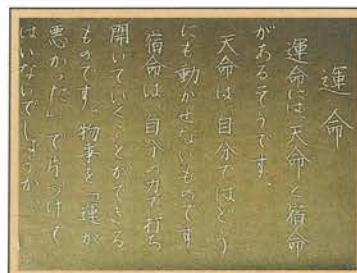 運命
運命には「天命」と「宿命」
があるそうです。
天命は、自分ではどう
にも動かせないものです
宿命は、自分の力で打ち
開いていくことができる
ものです。物事を「運が
悪かった」で片づけて
はいないでしょうか。